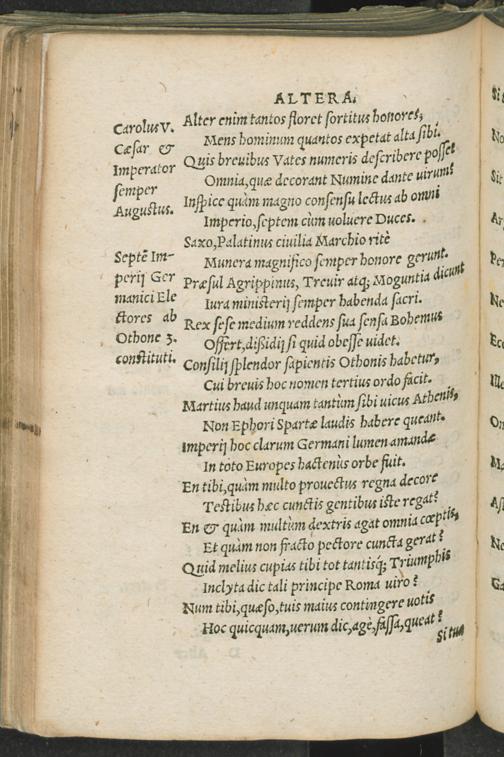 ALTERA.
Carolus V.
Cæsar &
Imperator
semper
Augustus.
Septē Im-
perij Ger
manici Ele
ctores ab
Othone 3.
constituti.
Alter enim tantos floret sortitus honores,
Mens hominum quantos expetat alta sibi.
Quis breuibus Vates numeris describere posset
Omnia, quæ decorant Numine dante uirum?
Inspice quàm magno consensu lectus ab omni
Imperio, septem cùm uoluere Duces.
Saxo, Palatinus ciuilia Marchio ritè
Munera magnifico semper honore gerunt.
Præsul Agrippinus, Treuir atq; Moguntia dicunt
Iura ministerij semper habenda sacri.
Rex sese medium reddens sua sensa Bohemus
Offert, dißidij si quid obesse uidet.
Consilij splendor sapientis Othonis habetur,
Cui breuis hoc nomen tertius ordo facit.
Martius haud unquam tantùm sibi uicus Athenis,
Non Ephori Spartæ laudis habere queant.
Imperij hoc clarum Germani lumen amandæ
In toto Europes hactenùs orbe fuit.
En tibi, quàm multo prouectus regna decore
Testibus hæc cunctis gentibus iste regat?
En & quàm multùm dextris agat omnia cœptis,
Et quàm non fracto pectore cuncta gerat?
Quid melius cupias tibi tot tantisq; Triumphis
Inclyta dic tali principe Roma uiro?
Num tibi, quæso, tuis maius contingere uotis
Hoc quicquam, uerum dic, agè, fassa, queat?
Si tua